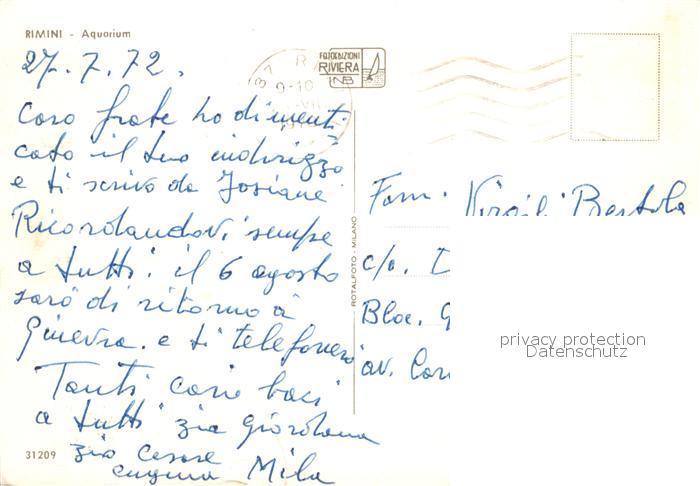 RIMINI - Aquarium
27.7.72.
FOTOEDIZIONI
RIVIERA
9-10
Caro frate ho dimenti
cato il tuo indirizzo
e ti scrivo da Josiane
Ricordandovi sempre
a tutti. il 6 agosto
sarò di ritorno a
Ginevra. e ti telefonerò
Tanti cari baci
a tutti zia Giordana
zio Cesare
cugina Mila
31209
ROTALFOTO - MILANO
Fam. Virgili Bertola
c/o.
Bloc.
av.
privacy protection
Datenschutz